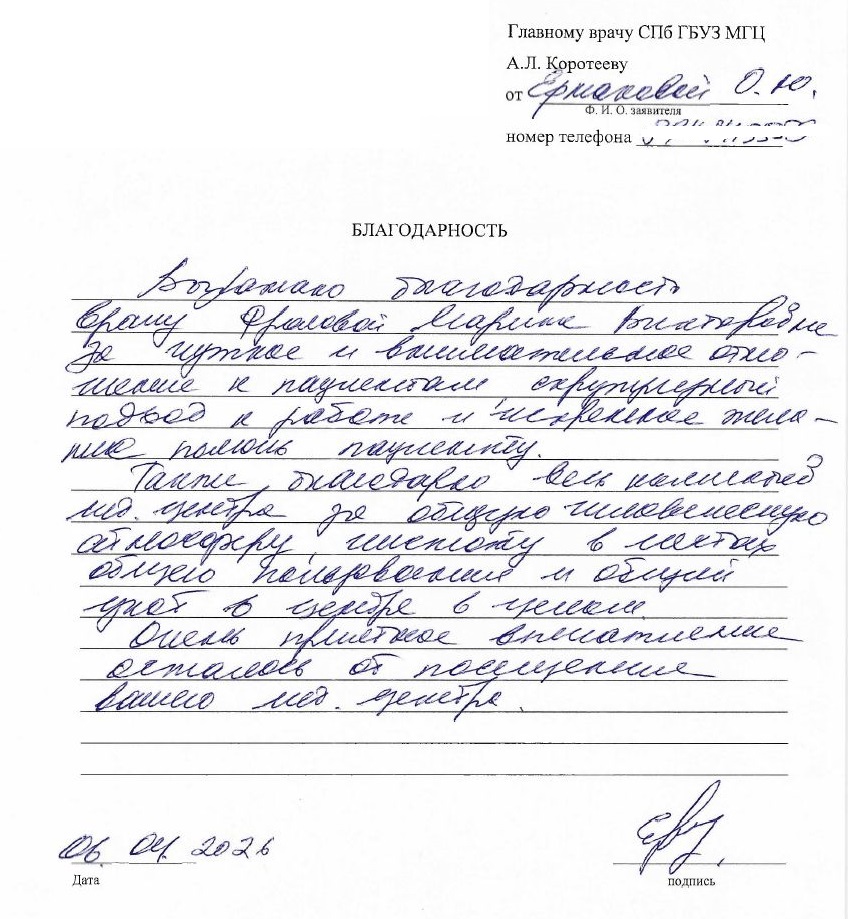 Главному врачу СПб ГБУЗ МГЦ
А.Л. Коротееву
от Ермаковой О.Ю.
Ф. И. О. заявителя
номер телефона
БЛАГОДАРНОСТЬ
Выражаю благодарность
врачу Фроловой Марине Викторовне
за чуткое и внимательное отно-
шение к пациентам скрупулезный
подход к работе и искреннее жела-
ние помочь пациенту.
Также благодарю весь коллектив
мед. центра за общую человеческую
атмосферу, чистоту в местах
общего пользования и общий
уют в центре в целом.
Очень приятное впечатление
осталось от посещения
вашего мед. центра.
06.04.2026
Дата
подпись